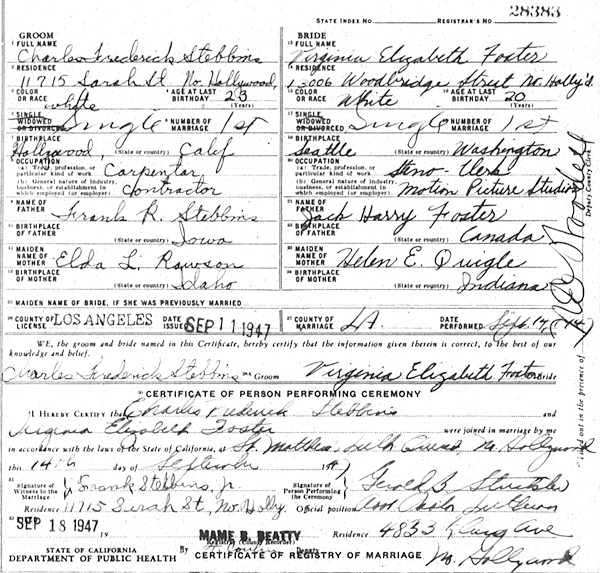 28383
STATE INDEX NO. REGISTRAR'S NO.
GROOM
FULL NAME
Charles Frederick Stebbins
RESIDENCE
11715 Sarah St. No. Hollywood,
COLOR OR RACE white AGE AT LAST BIRTHDAY 23 (Years)
SINGLE WIDOWED OR DIVORCED Single NUMBER OF MARRIAGE 1st
BIRTHPLACE Hollywood, (State or country) Calif
OCCUPATION
(a) Trade, profession, or particular kind of work Carpenter
(b) General nature of Industry, business, or establishment in which employed (or employer) Contractor
NAME OF FATHER Frank R. Stebbins
BIRTHPLACE OF FATHER (State or country) Iowa
MAIDEN NAME OF MOTHER Elda L. Rawson
BIRTHPLACE OF MOTHER (State or country) Idaho
BRIDE
FULL NAME
Virginia Elizabeth Foster
RESIDENCE
13006 Woodbridge Street No. Holly'd.
COLOR OR RACE White AGE AT LAST BIRTHDAY 20 (Years)
SINGLE WIDOWED OR DIVORCED Single NUMBER OF MARRIAGE 1st
BIRTHPLACE Seattle (State or country) Washington
OCCUPATION
(a) Trade, profession, or particular kind of work Steno-Clerk
(b) General nature of Industry, business, or establishment in which employed (or employer) Motion Picture Studio
NAME OF FATHER Jack Harry Foster
BIRTHPLACE OF FATHER (State or country) Canada
MAIDEN NAME OF MOTHER Helen E. Quigle
BIRTHPLACE OF MOTHER (State or country) Indiana
MAIDEN NAME OF BRIDE, IF SHE WAS PREVIOUSLY MARRIED
COUNTY OF LICENSE LOS ANGELES DATE ISSUED SEP 11 1947 COUNTY OF MARRIAGE LA DATE PERFORMED Sept. 14,
WE, the groom and bride named in this Certificate, hereby certify that the information given therein is correct, to the best of our
knowledge and belief.
Charles Frederick Stebbins Groom Virginia Elizabeth Foster Bride
in the presence of
Deputy County Clerk
CERTIFICATE OF PERSON PERFORMING CEREMONY
I HEREBY CERTIFY that Charles Frederick Stebbins and
Virginia Elizabeth Foster were joined in marriage by me
in accordance with the laws of the State of California, at St. Matthew Luth No. Hollywood
this 14th day of September 194
Signature of Witness to the Marriage Frank Stebbins, Jr.
Residence 11715 Sarah St, No. Holly.
Signature of Person Performing the Ceremony Gerald B.
Official position Lutheran
SEP 18 1947 19
Residence 4833 Ave
No. Hollywood
MAME B. BEATTY
Registrar (County Recorder)
By Deputy
STATE OF CALIFORNIA
DEPARTMENT OF PUBLIC HEALTH
CERTIFICATE OF REGISTRY OF MARRIAGE